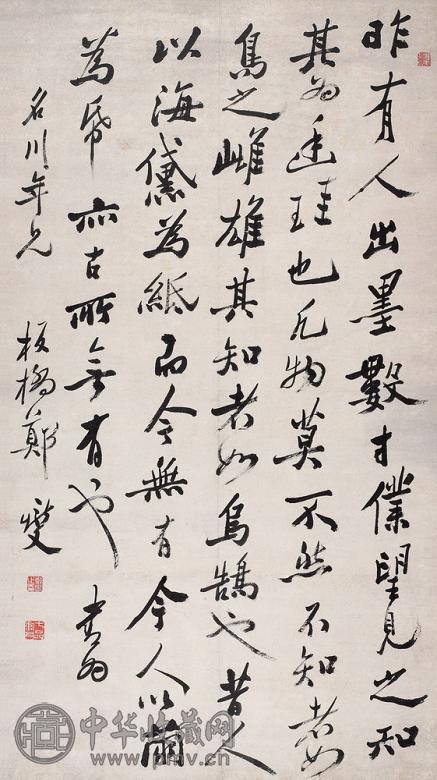 昨有人出墨數寸僕望見之知
其为廷珪也凡物莫不然不知者如
烏之雌雄其知者如烏鵠也昔人
以海黛為紙而今無有今人以
為帋亦古所無有也 書为
名川年兄
板橋鄭燮
中华收藏网